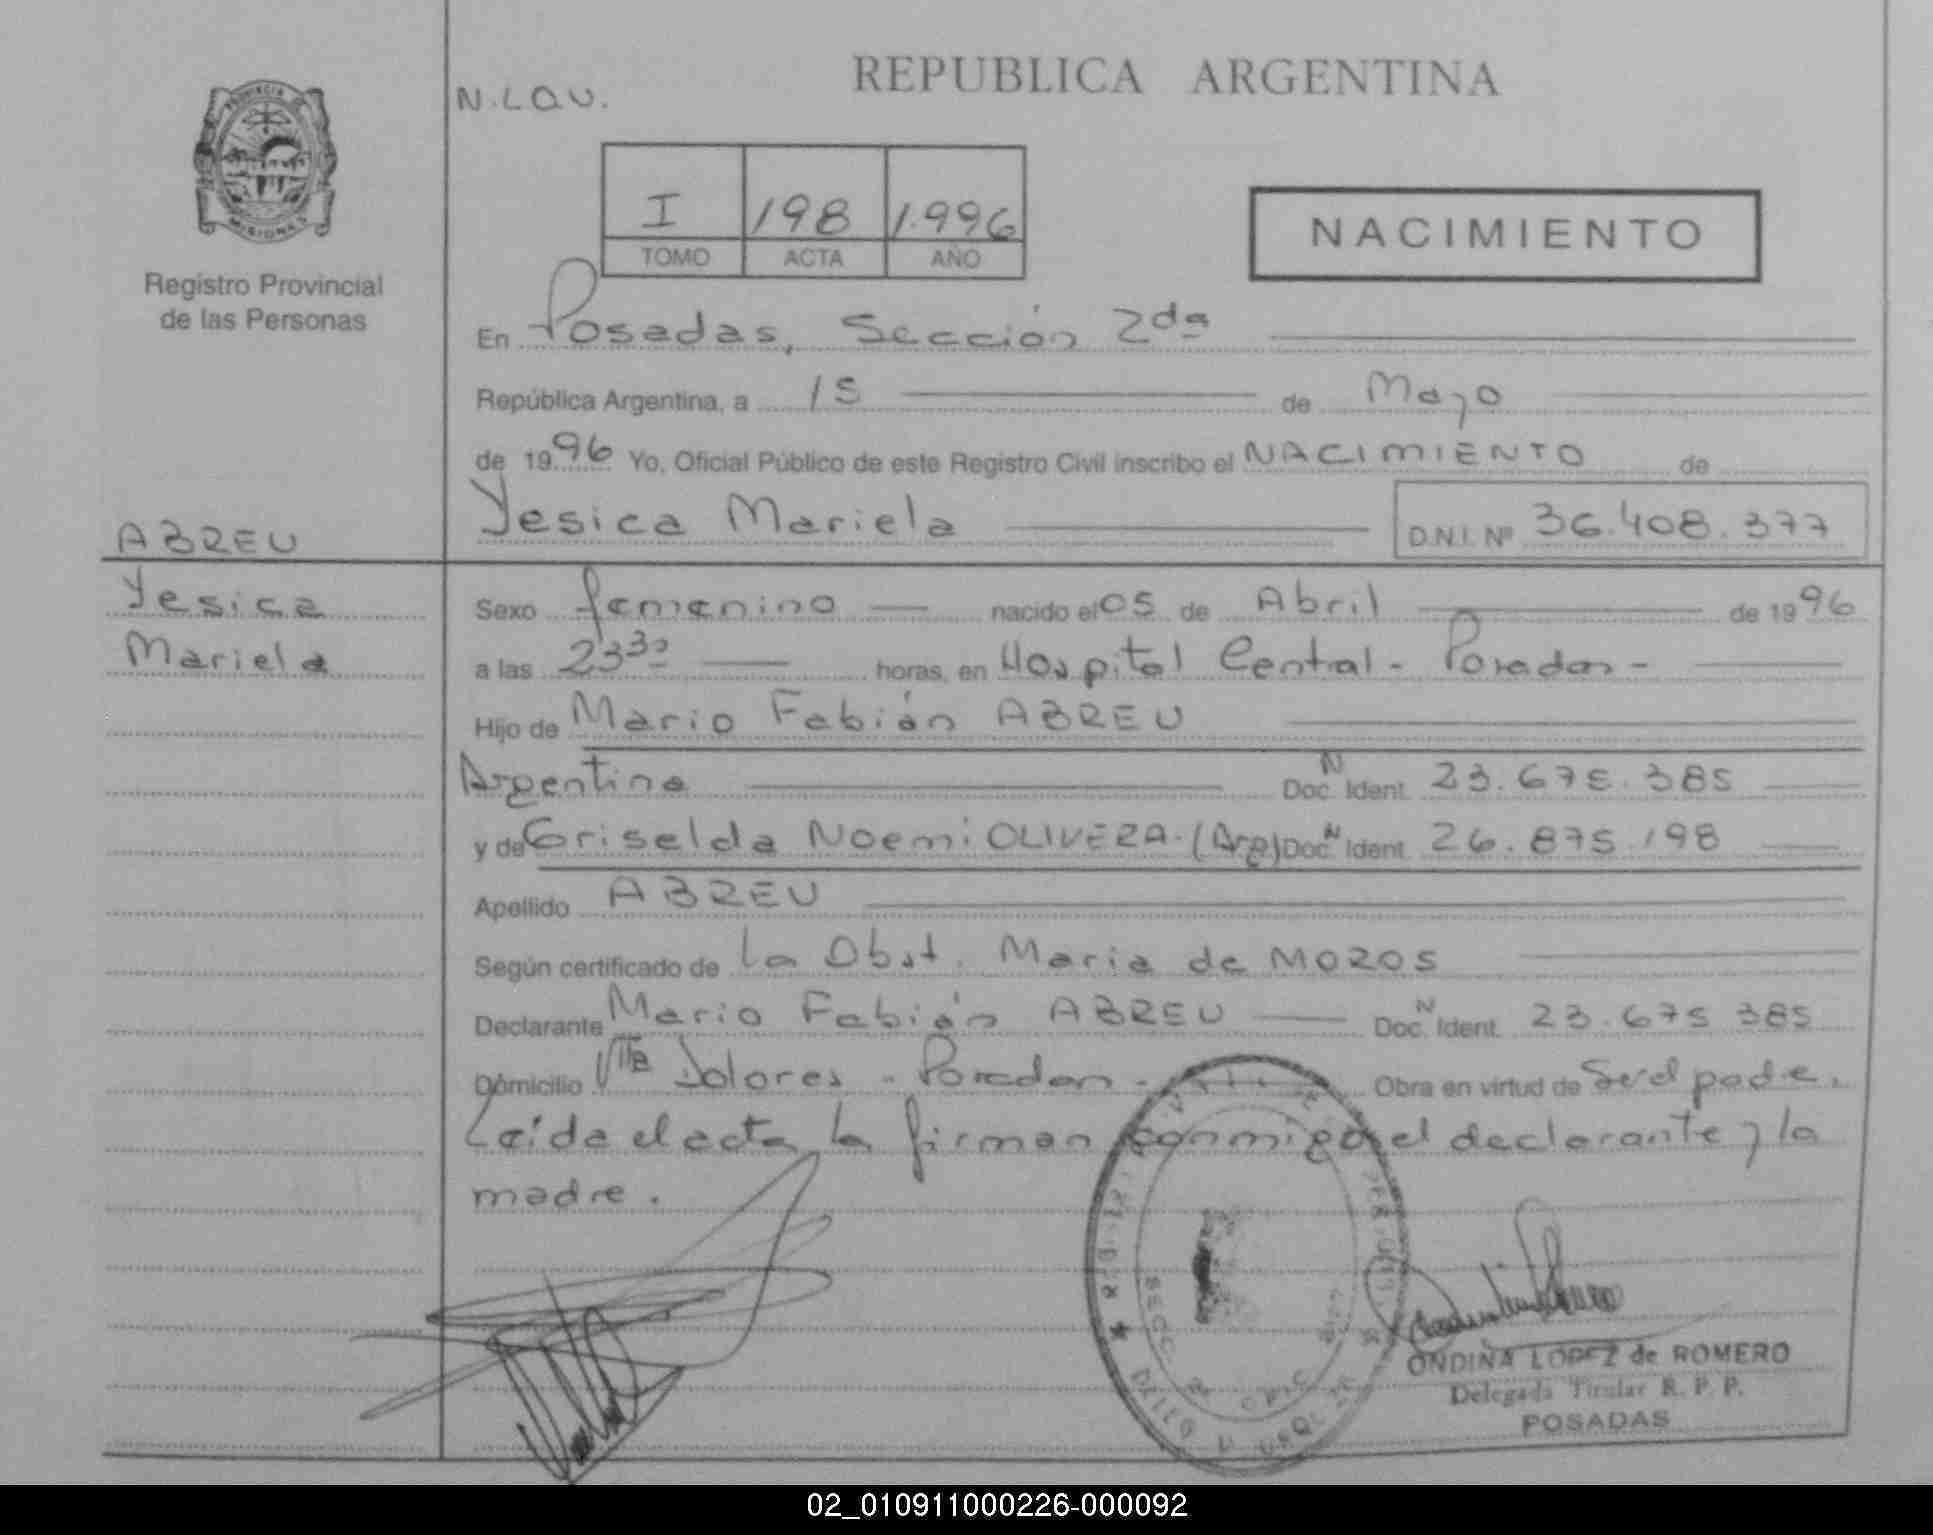 REPUBLICA ARGENTINA
N.LQU.
PROVINCIA DE
MISIONES
Registro Provincial
de las Personas
I 198 1.996
TOMO ACTA AÑO
NACIMIENTO
En Posadas, Sección 2da
República Argentina, a 15 de Mayo
de 1996 Yo, Oficial Público de este Registro Civil inscribo el NACIMIENTO de
Yesica Mariela D.N.I. Nº 36.408.377
ABREU
Yesica
Mariela
Sexo femenino nacido el 05 de Abril de 1996
a las 23 30 horas, en Hospital Central - Posadas -
Hijo de Mario Fabián ABREU
Argentina N Doc. Ident. 23.675.385
y de Griselda Noemi OLIVERA. (Arg) N Doc. Ident. 26.875.198
Apellido ABREU
Según certificado de La Obst. Maria de MOZOS
Declarante Mario Fabián ABREU N Doc. Ident. 23.675 385
Domicilio Vlla Dolores - Posadas - Obra en virtud de Ser el padre.
Leída el acta la firman conmigo el declarante y la
madre.
SECC. 2
ONDINA LOPEZ de ROMERO
Delegada Titular R. P. P.
POSADAS
02_010911000226-000092